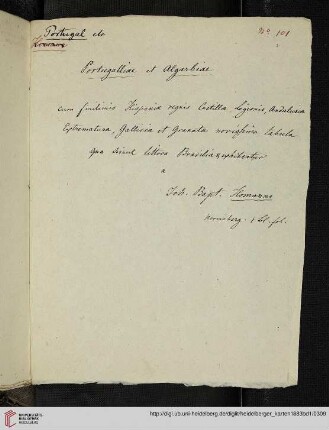 Portugal etc
No 101
Homann
Portugalliae et Algarbiae
cum finitimis Hispaniae regnis Castillae Legionis, Andalusiae
Extremadurae, Galliciae et Granatae novissima tabula
qua simul littora Brasiliae exhibentur
a
Joh. Bapt. Homanno
Nürnberg. 1 Bl. fol.
UNIVERSITÄTS-
BIBLIOTHEK
HEIDELBERG
http://digi.ub.uni-heidelberg.de/diglit/heidelberger_karten1883bd1/0309